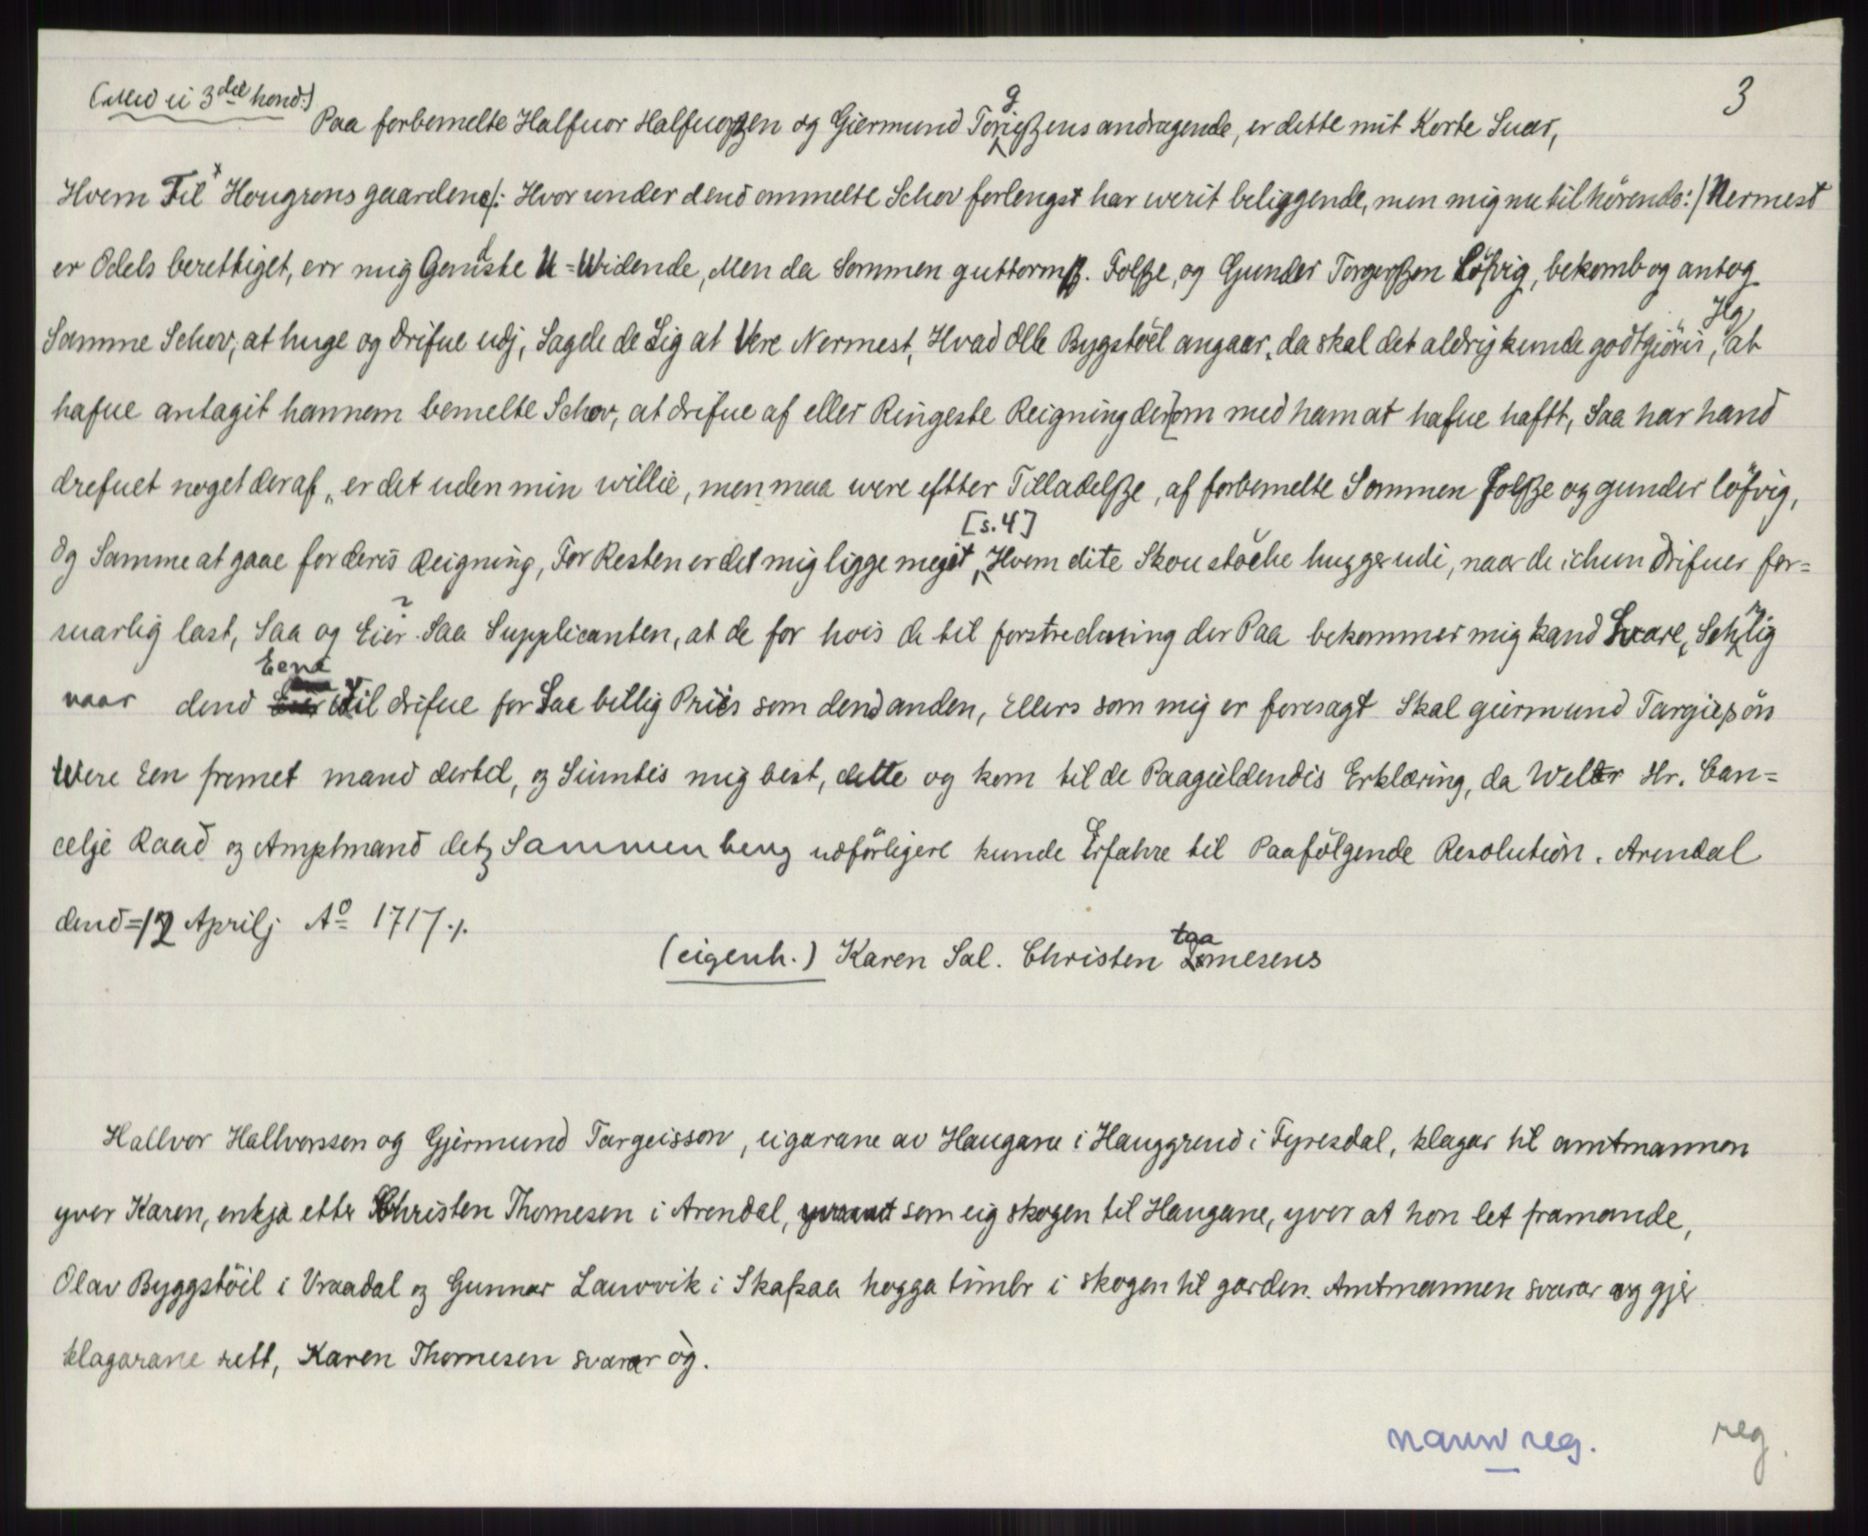 (Med ei 3die hond:) 3
Paa forbemelte Halfuor Halfuorßen og Giermund Torgießens andragende, er dette mit Korte Suar,
Hvem Til Hougrens gaardene /: Hvor under dend ommelte Schov forlengst har werit beliggende, men mig nu tilhörende :/ Nermest
er Odels berettiget, err mig Ganste U=Widende, Men da Sommen guttormß. Folße, og Gunder Torgerßen Löfvig, bekomb og antog
Samme Schov, at huge og drifue udj, Sagde de Sig at Vere Nermest, Hvad Olle Bygstöel angaar, da skal det aldrig kunde godtgiöris, Jeg at
hafue antagit hannem bemelte Schov, at drifue af eller Ringeste Reigning derom med ham at hafue hafft, Saa har hand
drefuet noget deraf, er det uden min willie, men maa were effter Tilladelße, af forbemelte Sommen Folße og gunder löfvig,
Og Samme at gaae for deris Reigning, For Resten er det mig ligge megit, [s. 4] Hvem dite Skou stöche hugger udi, naar de ichun drifuer for=
suarlig last, Saa og Eier ? Saa Supplicanten, at de for hvis de til forstrechning der Paa bekommer mig kand Svare, Sehrlig
naar dend Eene Vil drifue for Saa billig Priis som dend anden, Ellers som mig er foresagt Skal giermund Targießön
Were Een fremet mand dertil, og Siuntis mig best, dette og kom til de Paagieldendis Erklæring, da Welbr Hr. Can=
celje Raad og Amptmand detz Sammenheng udförligere kunde Erfahre til Paafölgende Resolution. Arendal
dend=12 Aprilj Ao 1717./.
(eigenh.) Karen Sal. Christen taamesens
Hallvor Hallvorsson og Gjermund Targeisson, eigarane av Haugane i Hauggrend i Fyresdal, klagar til amtmannen
yver Karen, enkja etter Christen Thomesen i Arendal, som eig skogen til Haugane, yver at hon let framande,
Olav Byggstöil i Vraadal og Gunnar Lauvvik i Skafsaa hogga timbr i skogen til garden. Amtmannen svarar og gjer
klagarane rett, Karen Thomesen svarar òg.
namnreg. reg.